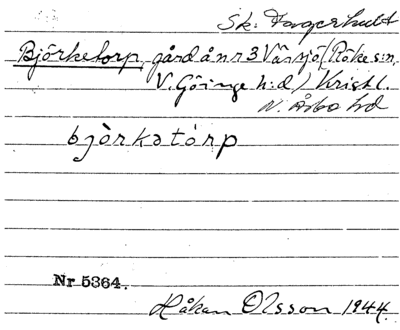 Sk. Fagerhult
Björketorp gård å nr 3 Vårsjö (Röke s:n,
V. Göinge h:d) Kristl.
N. Åsbo hd
bjòrkatórp
Nr 5364.
Håkan Olsson 1944.